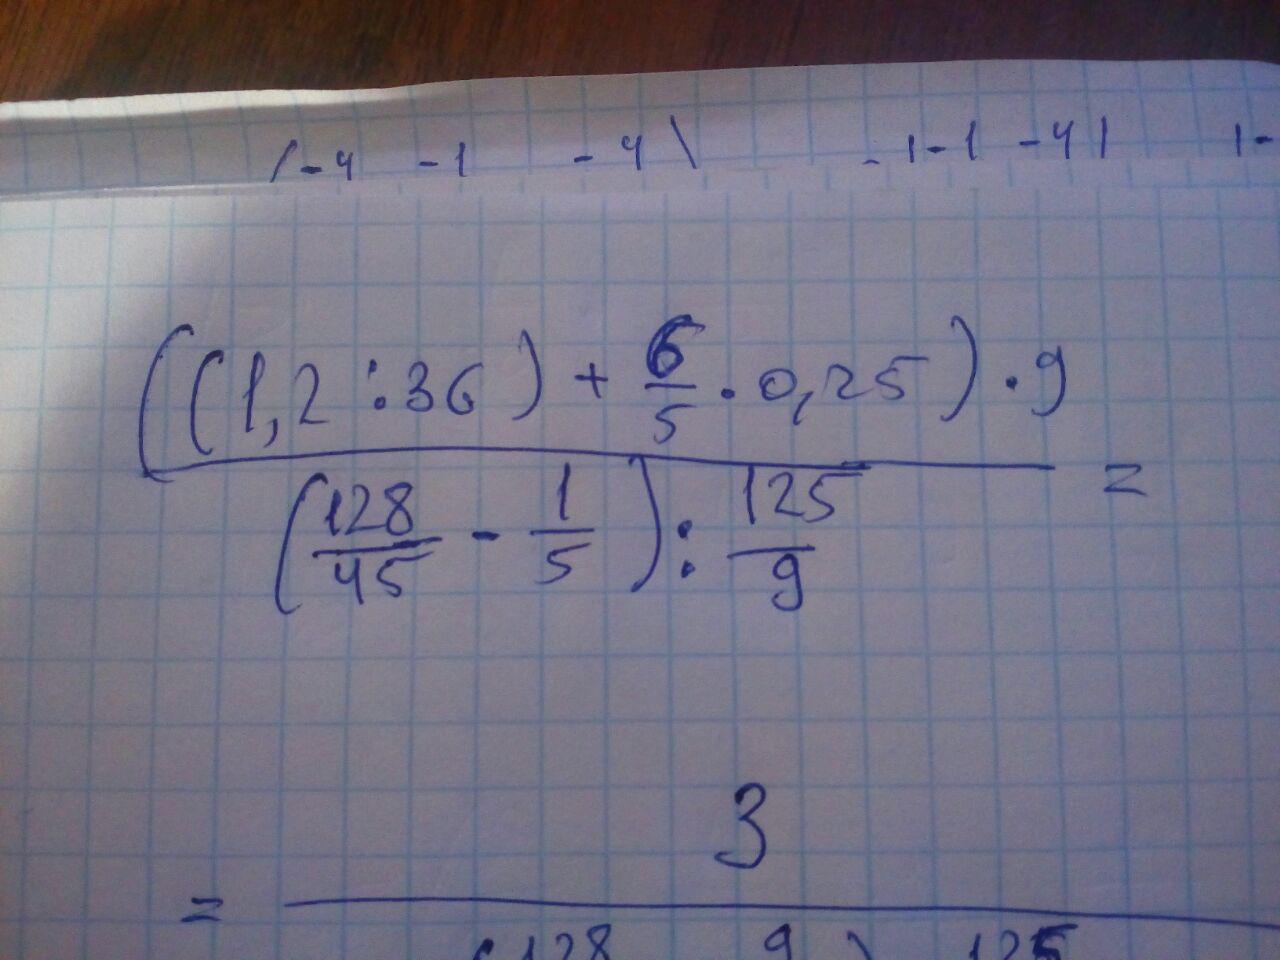 -4 -1 -4 -1 -1 -4 1-
((1,2:36) + 6/5 · 0,25) · 9
(128/45 - 1/5) : 125/9 =
3
=
(128 9) 125